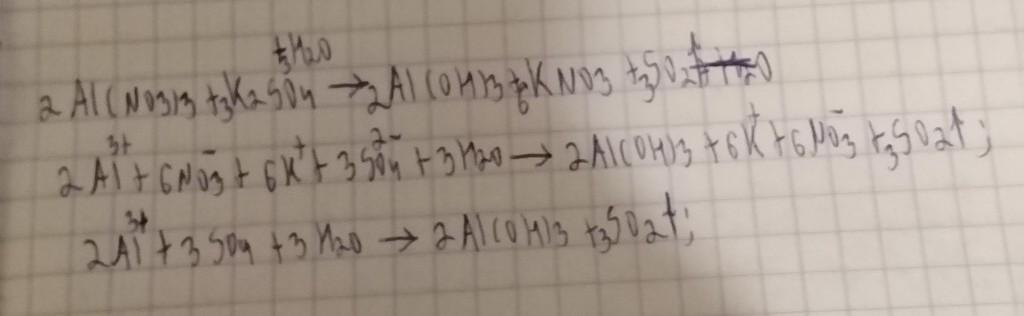 2Al(NO3)3 + 3K2SO4 + 3H2O → 2Al(OH)3 + 6KNO3 + 3SO2↑
2Al3+ + 6NO3- + 6K+ + 3SO42- + 3H2O → 2Al(OH)3 + 6K+ + 6NO3- + 3SO2↑;
2Al3+ + 3SO4 + 3H2O → 2Al(OH)3 + 3SO2↑;